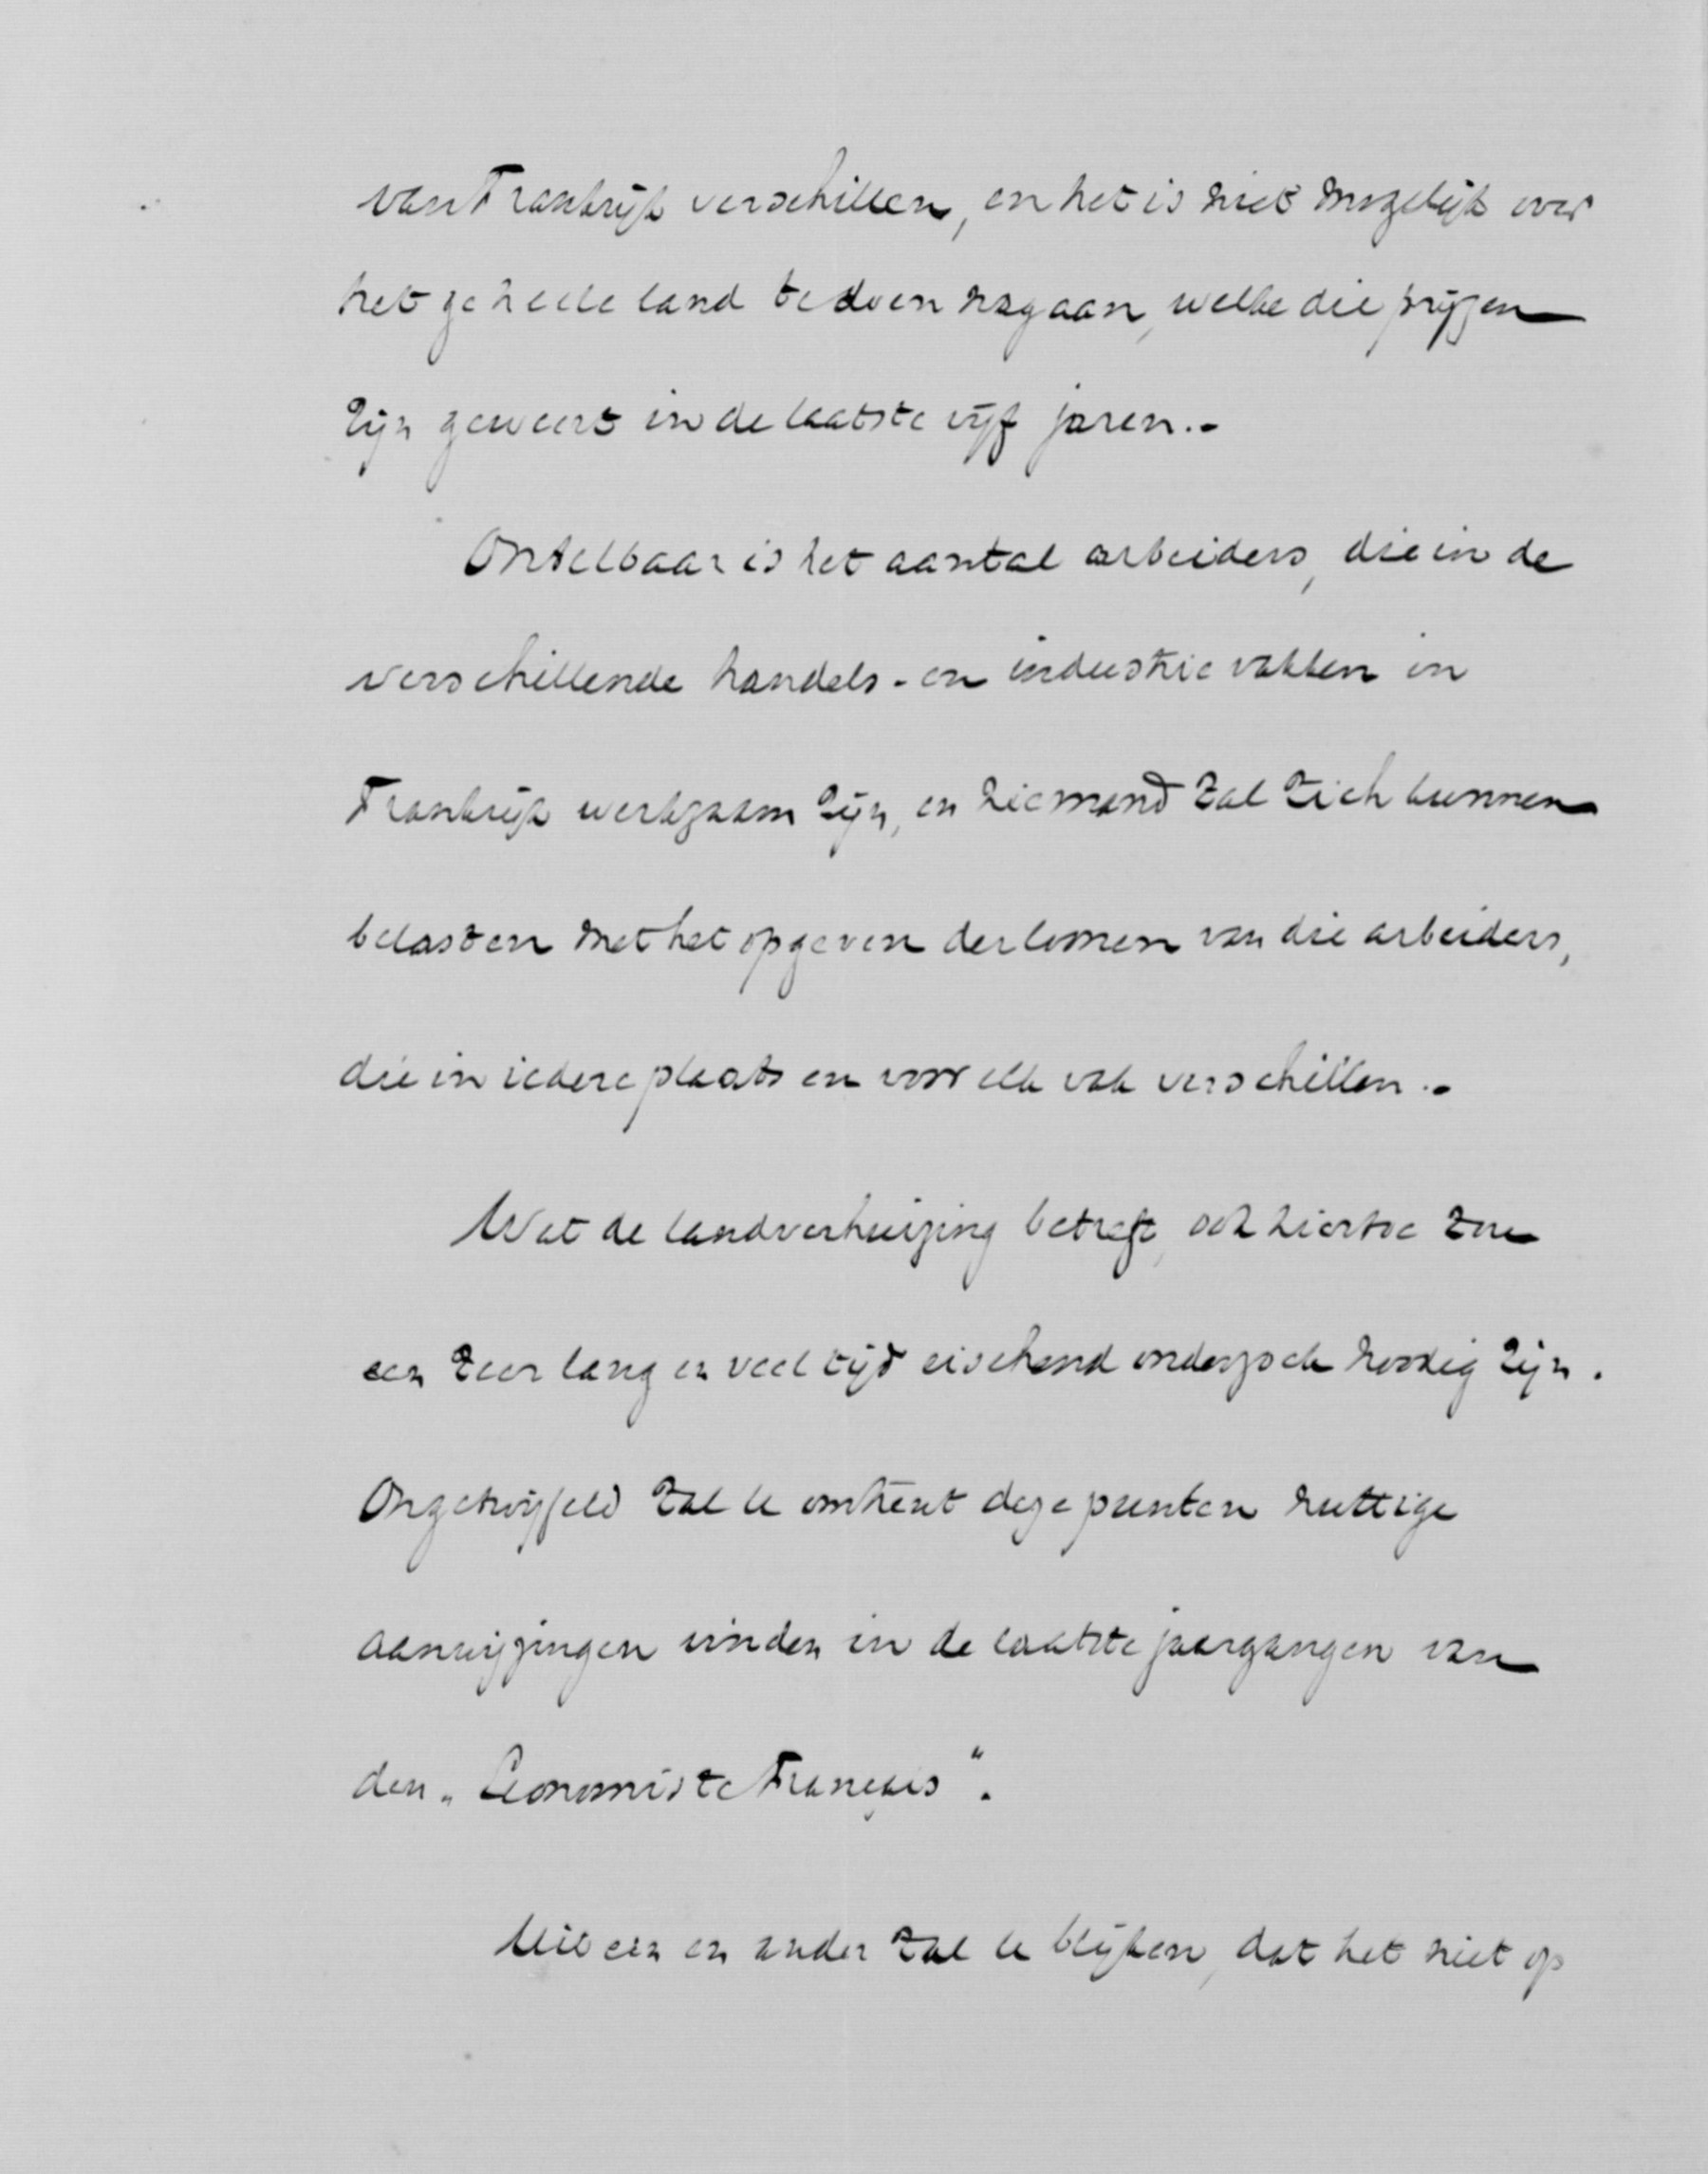 van Frankrijk verschillen, en het is niet mogelijk over
het geheele land te doen nagaan, welke die prijzen
zijn geweest in de laatste vijf jaren.-
Ontelbaar is het aantal arbeiders, die in de
verschillende handels- en industrie vakken in
Frankrijk werkzaam zijn, en niemand zal zich kunnen
belasten met het opgeven der loonen van die arbeiders,
die in iedere plaats en voor elk vak verschillen.-
Wat de landverhuizing betreft, ook hiertoe zou
een zeer lang en veel tijd eischend onderzoek noodig zijn.
Ongetwijfeld zal u omtrent deze punten nuttige
aanwijzingen vinden in de laatste jaargangen van
den „Economiste Français".
Uit een en ander zal u blijken, dat het niet op